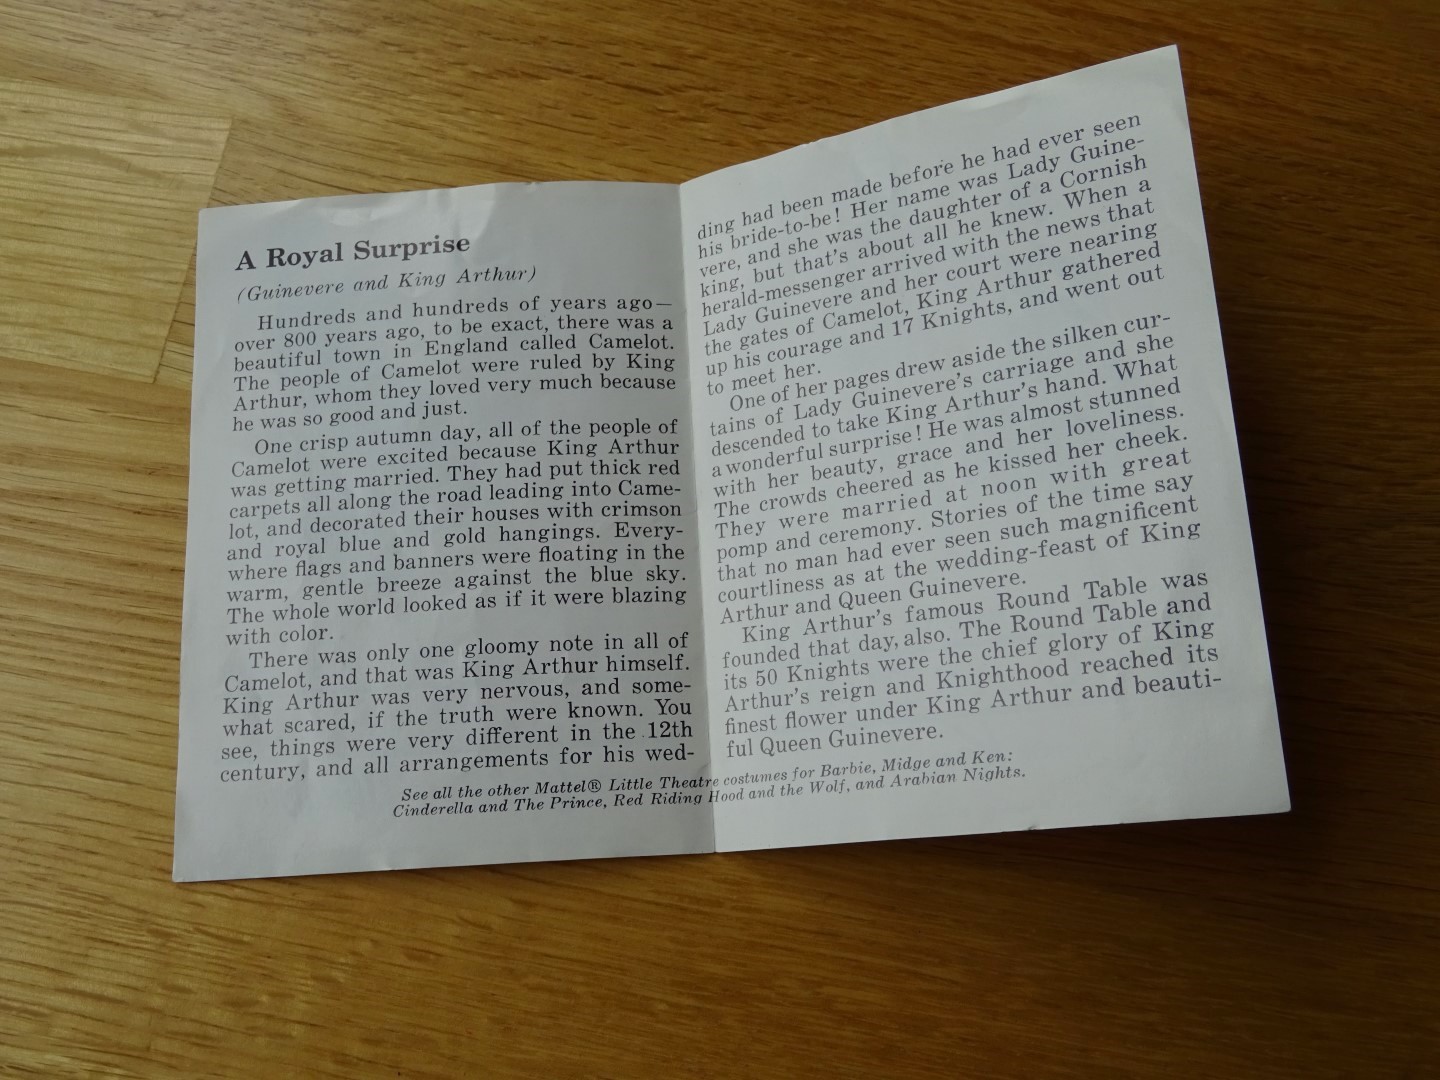 A Royal Surprise
(Guinevere and King Arthur)
Hundreds and hundreds of years ago—
over 800 years ago, to be exact, there was a
beautiful town in England called Camelot.
The people of Camelot were ruled by King
Arthur, whom they loved very much because
he was so good and just.
One crisp autumn day, all of the people of
Camelot were excited because King Arthur
was getting married. They had put thick red
carpets all along the road leading into Came-
lot, and decorated their houses with crimson
and royal blue and gold hangings. Every-
where flags and banners were floating in the
warm, gentle breeze against the blue sky.
The whole world looked as if it were blazing
with color.
There was only one gloomy note in all of
Camelot, and that was King Arthur himself.
King Arthur was very nervous, and some-
what scared, if the truth were known. You
see, things were very different in the 12th
century, and all arrangements for his wed-
ding had been made before he had ever seen
his bride-to-be! Her name was Lady Guine-
vere, and she was the daughter of a Cornish
king, but that's about all he knew. When a
herald-messenger arrived with the news that
Lady Guinevere and her court were nearing
the gates of Camelot, King Arthur gathered
up his courage and 17 Knights, and went out
to meet her.
One of her pages drew aside the silken cur-
tains of Lady Guinevere's carriage and she
descended to take King Arthur's hand. What
a wonderful surprise! He was almost stunned
with her beauty, grace and her loveliness.
The crowds cheered as he kissed her cheek.
They were married at noon with great
pomp and ceremony. Stories of the time say
that no man had ever seen such magnificent
courtliness as at the wedding-feast of King
Arthur and Queen Guinevere.
King Arthur's famous Round Table was
founded that day, also. The Round Table and
its 50 Knights were the chief glory of King
Arthur's reign and Knighthood reached its
finest flower under King Arthur and beauti-
ful Queen Guinevere.
See all the other Mattel® Little Theatre costumes for Barbie, Midge and Ken:
Cinderella and The Prince, Red Riding Hood and the Wolf, and Arabian Nights.